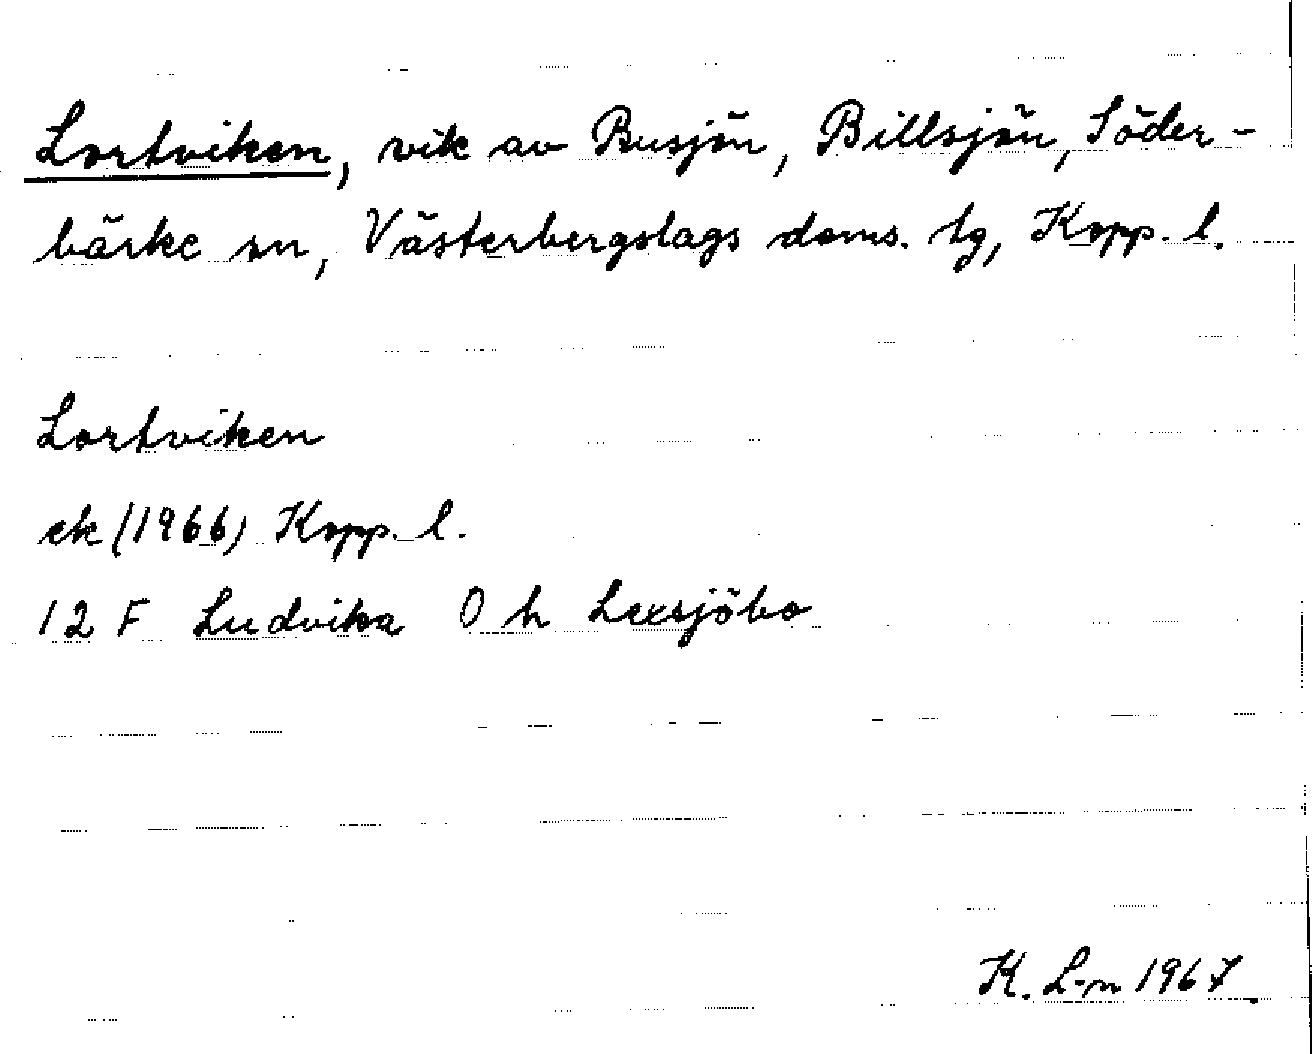 Lortviken, vik av Busjön, Billsjön, Söder-
bärke sn, Västerbergslags doms. tg, Kopp. l.
Lortviken
ek (1966) Kopp. l.
12 F Ludvika O h Lexsjöbo
K. L-n 1967